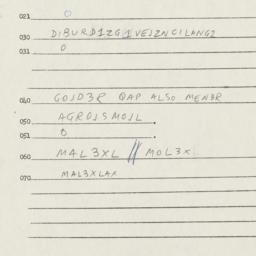 021 0
030 DIBURD1ZG1VEJZNCILANG2
031 0
040 GOJD3R QAP ALSO MEN3R
050 AGROJSMOJL .
051 0 .
060 MAL3XL // MOL3X
070 MAL3XLAX